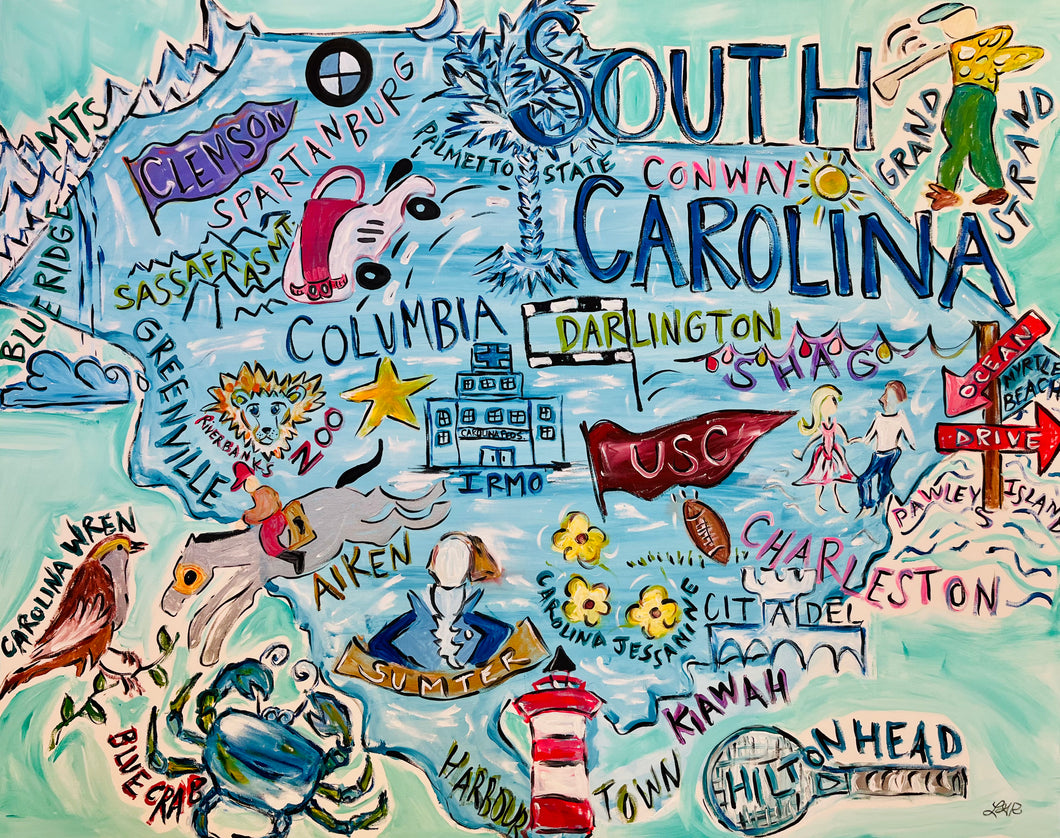 SOUTH
CAROLINA
MTS
BLUE RIDGE
CLEMSON
SPARTANBURG
PALMETTO STATE
CONWAY
GRAND STRAND
SASSAFRAS MT.
GREENVILLE
COLUMBIA
DARLINGTON
SHAG
OCEAN
DRIVE
MYRTLE
BEACH
RIVERBANKS
ZOO
IRMO
USC
PAWLEYS ISLAN
CAROLINA WREN
AIKEN
CHARLESTON
CAROLINA JESSAMINE
CITADEL
SUMTER
KIAWAH
BLUE CRAB
HARBOUR TOWN
HILTON HEAD